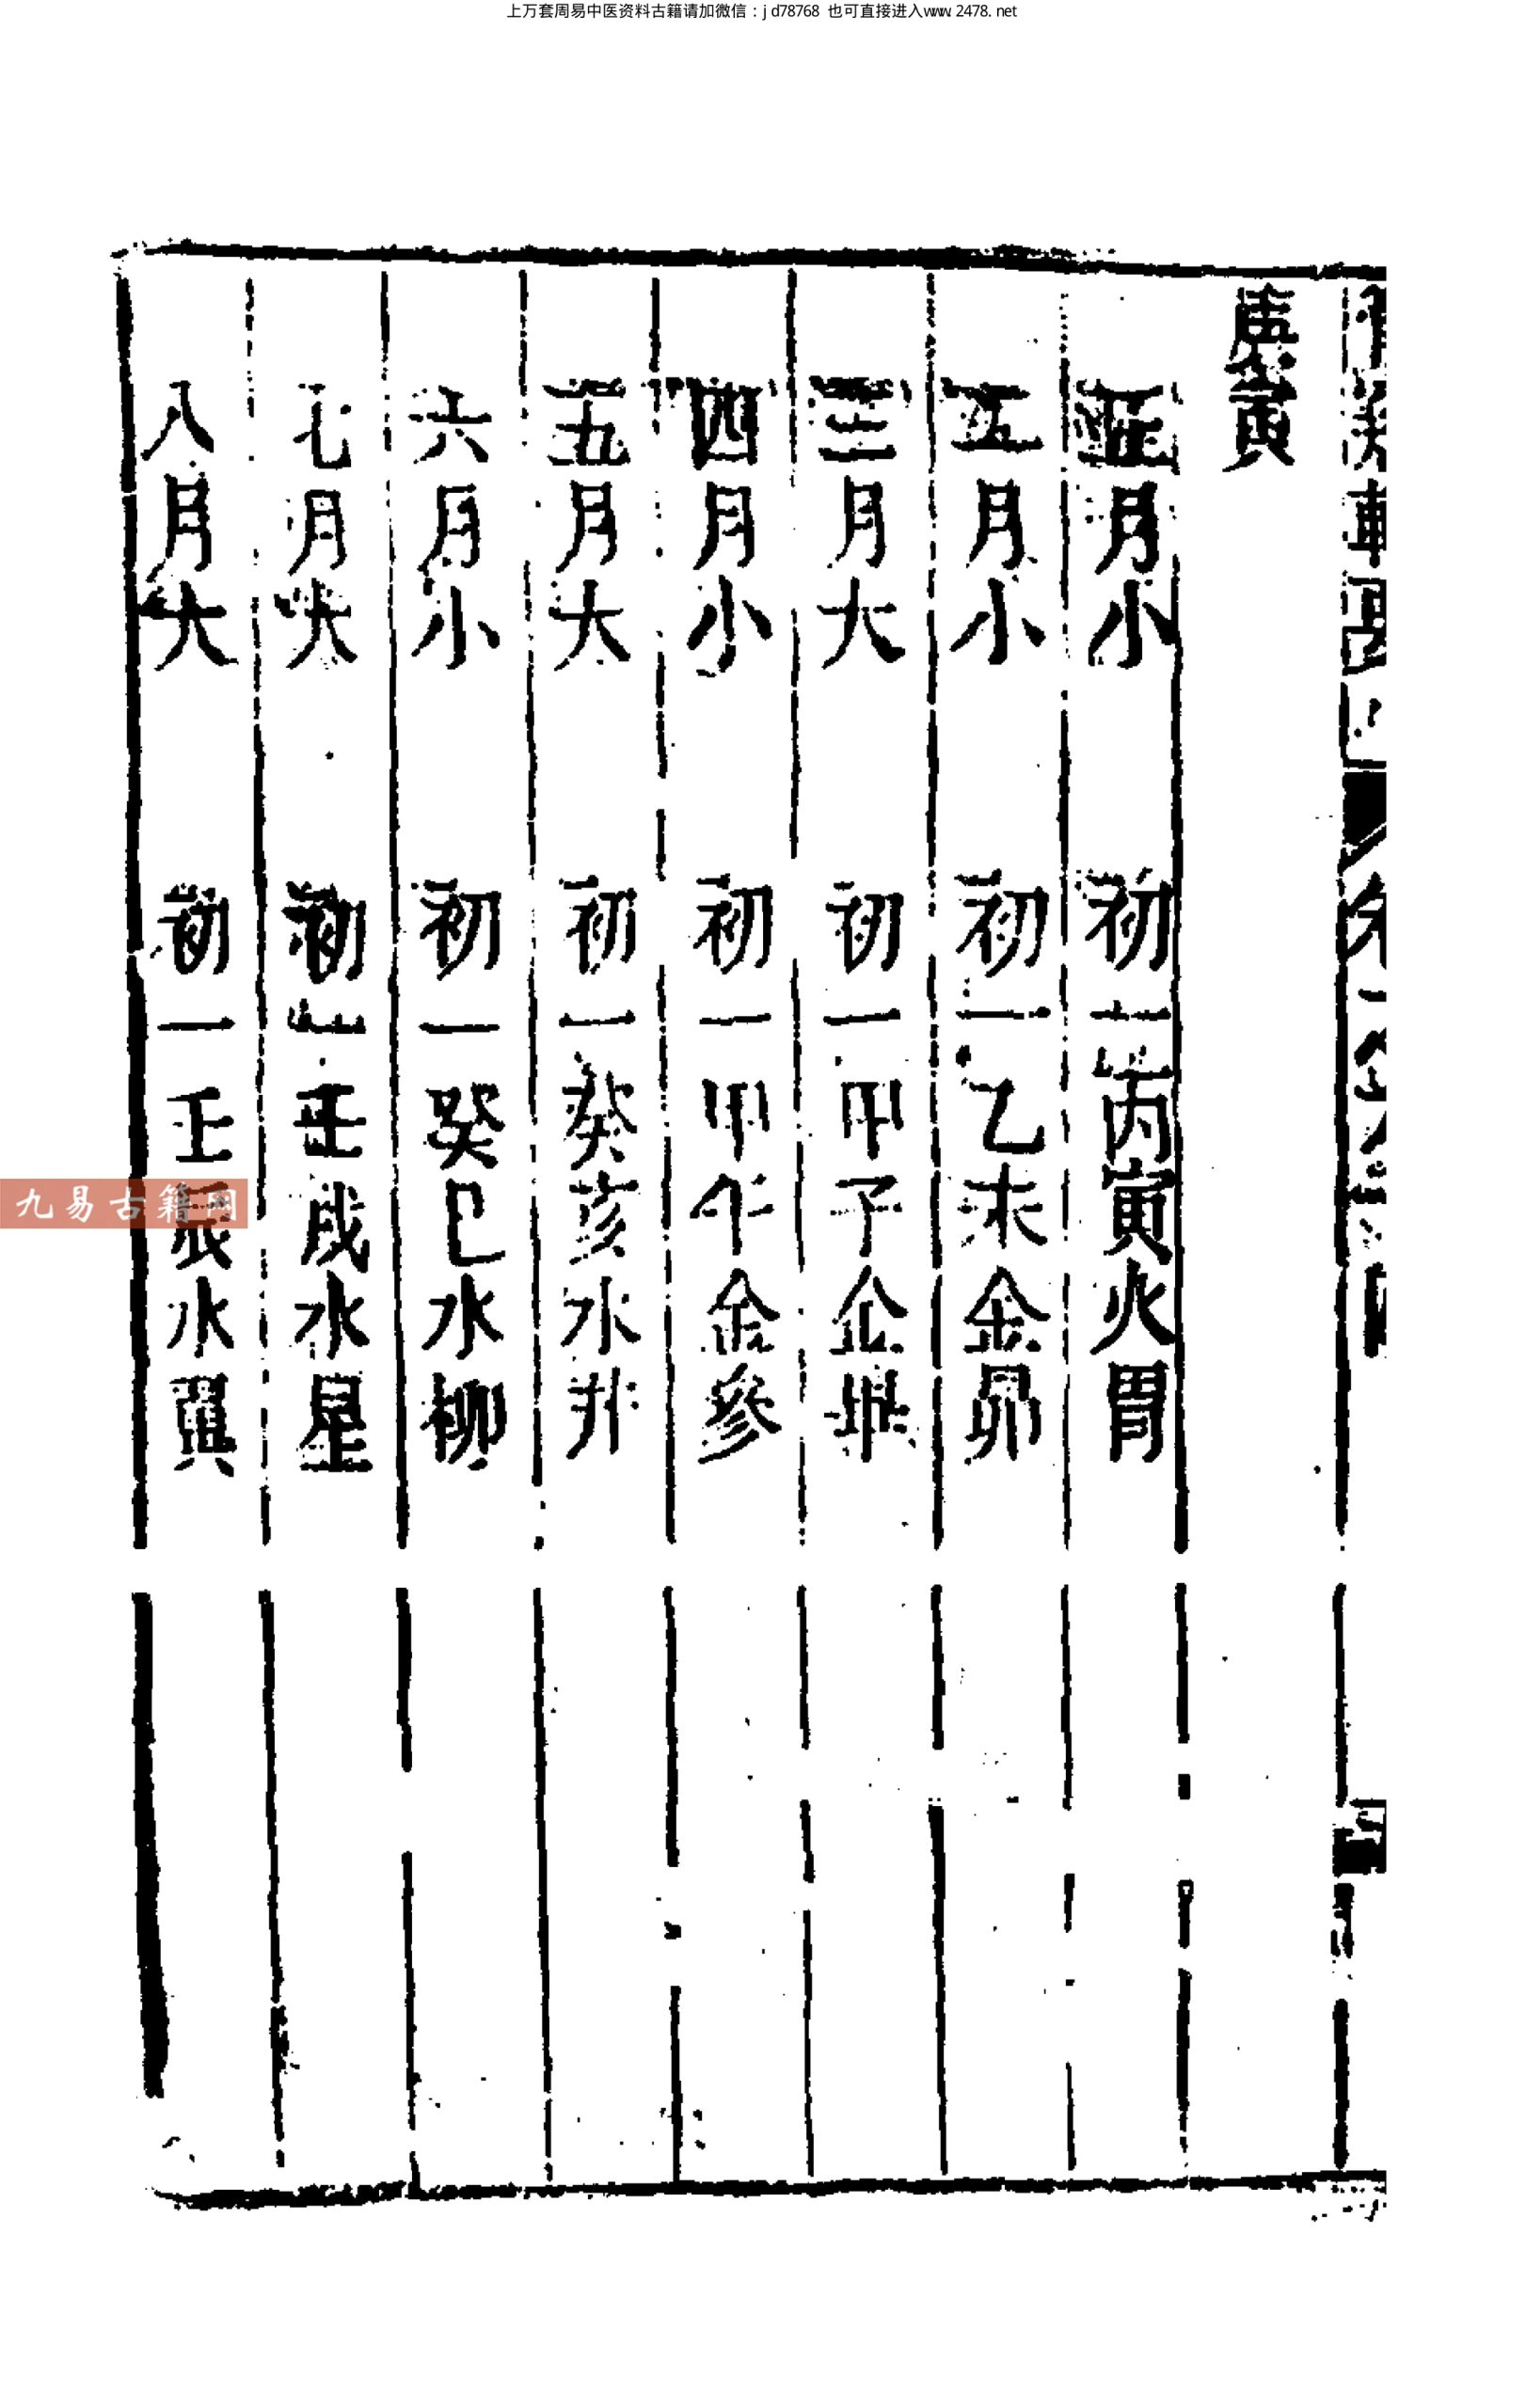 上万套周易中医资料古籍请加微信：jd78768 也可直接进入www.2478.net
庚寅
正月小 初一丙寅火胃
二月小 初一乙未金昴
三月大 初一甲子金
四月小 初一甲午金參
五月大 初一癸亥水井
六月小 初一癸巳水柳
七月大 初一壬戌水星
八月大 初一壬辰水翼
九易古籍网